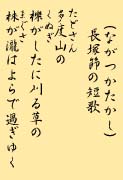 (ながつかたかし)
長塚節の短歌
たどさん
多度山の
くぬぎ
櫟がしたに刈る草の
まぐさ
秣が瀧はよらで過ぎゆく